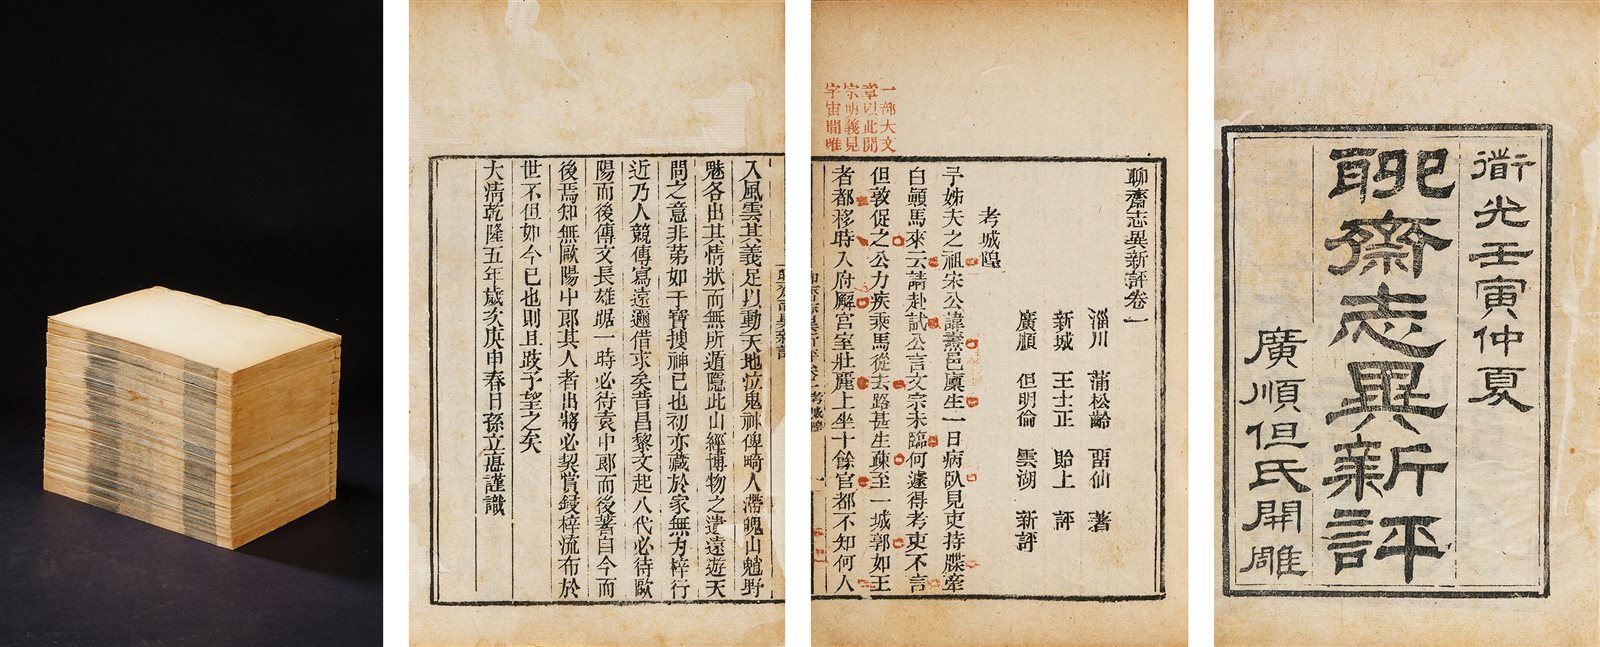 入風雲其義足以動天地泣鬼神俾畸人滯魄山魈野
魅各出其情狀而無所遁隱此山經博物之遺遠遊天
問之意非第如干寶搜神已也初亦藏於家無力梓行
近乃人競傳寫遠邇借求矣昔昌黎文起八代必待歐
陽而後傳文長雄踞一時必待袁中郎而後著自今而
後焉知無歐陽中郎其人者出將必契賞鋟梓流布於
世不但如今已也則且跂予望之矣
大清乾隆五年歲次庚申春日孫立惪謹識
一部大文
章以此開
宗明義見
宇宙間唯
聊齋志異新評卷一
淄川 蒲松齡 畱仙 著
新城 王士正 貽上 評
廣順 但明倫 雲湖 新評
考城隍
予姊夫之祖宋公諱燾邑廩生一日病臥見吏持牒牽
白顛馬來云請赴試公言文宗未臨何遽得考吏不言
但敦促之公力疾乘馬從去路甚生疎至一城郭如王
者都移時入府廨宮室壯麗上坐十餘官都不知何人
道光壬寅仲夏
聊齋志異新評
廣順但氏開雕